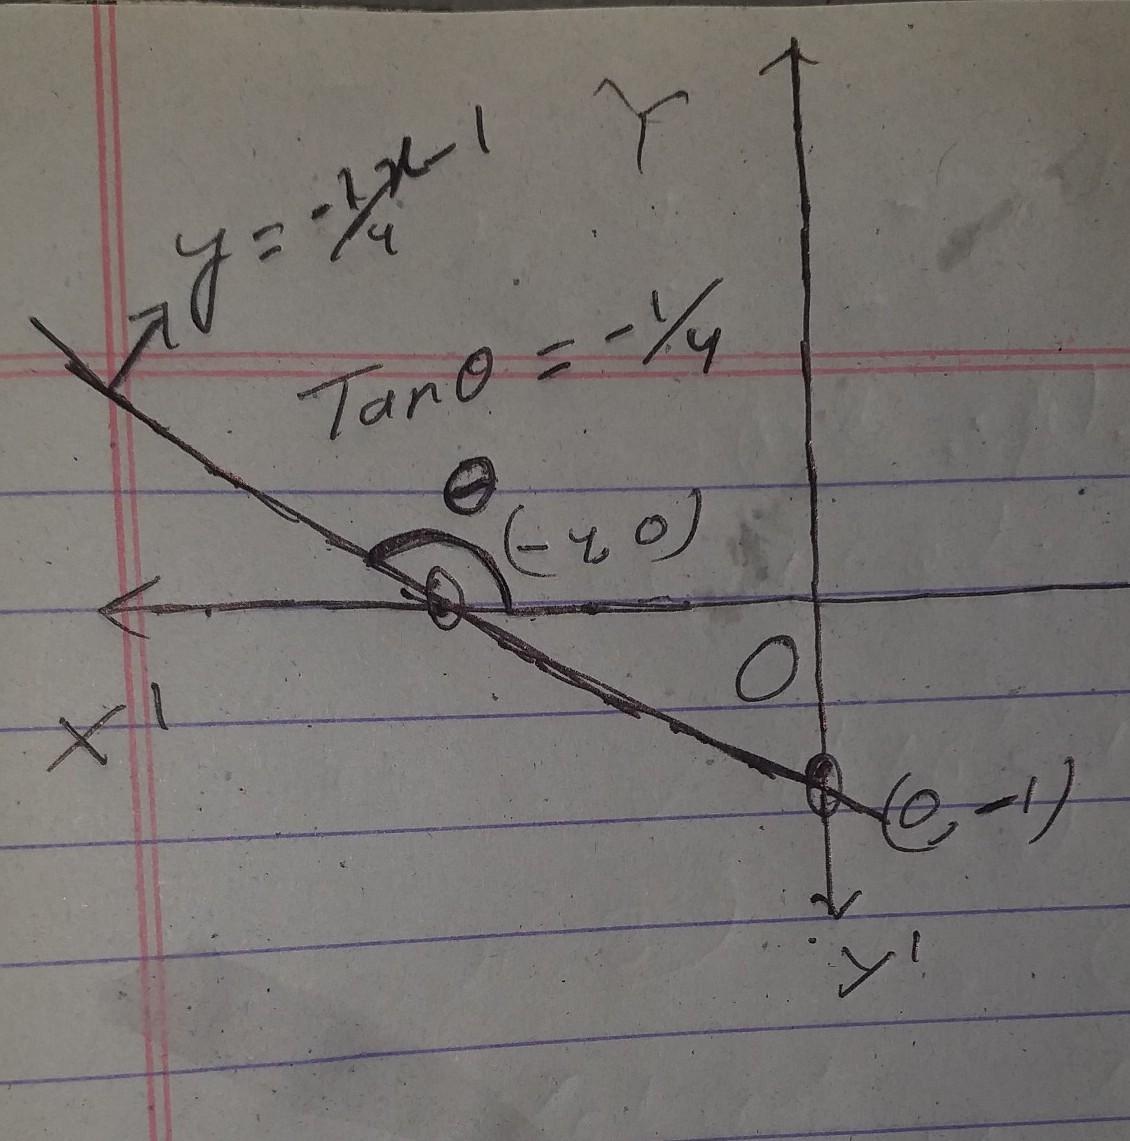 Y
y = -1/4 x - 1
Tanθ = -1/4
θ
(-4, 0)
O
X'
(0, -1)
y'